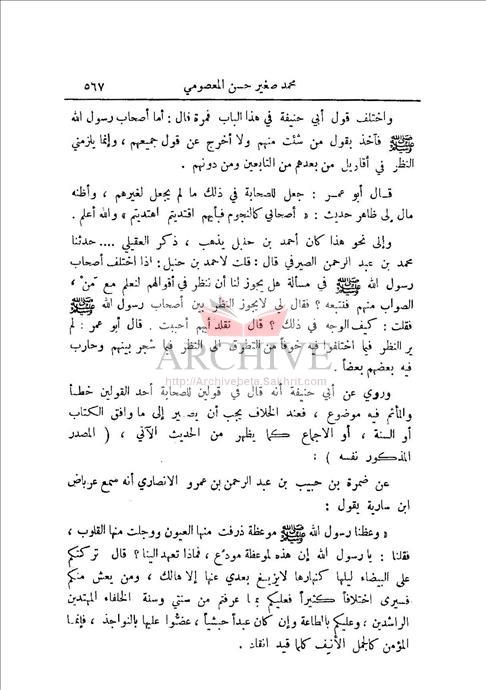 محمد صغير حسن المعصومي ٥٦٧
واختلف قول أبي حنيفة في هذا الباب فمرة قال : أما أصحاب رسول الله
ﷺ فآخذ بقول من شئت منهم ولا أخرج عن قول جميعهم ، وإنما يلزمني
النظر في أقاويل من بعدهم من التابعين ومن دونهم .
قـال أبو عمـر : جعل للصحابة في ذلك ما لم يجعل لغيرهم ، وأظنه
مال إلى ظاهر حديث : « أصحابي كالنجوم فبأيهم اقتديتم اهتديتم » والله أعلم .
وإلى نحو هذا كان أحمد بن حنبل يذهب ، ذكر العقيلي .... حدثنا
محمد بن عبد الرحمن الصيرفي قال : قلت لاحمد بن حنبل : اذا اختلف أصحاب
رسول الله ﷺ في مسألة هل يجوز لنا أن ننظر في أقوالهم لنعلم مع مَنْ ،
الصواب منهم فنتبعه ؟ فقال لي لايجوز النظر بين أصحاب رسول الله ﷺ
فقلت : كيف الوجه في ذلك ؟ قال تقلد أيهم أحببت . قال أبو عمر : لم
ير النظر فيما اختلفوا فيه خوفاً من التطرق الى النظر فيما شجر بينهم وحارب
فيه بعضهم بعضاً .
ARCHIVE
http://Archivebeta.Sakhrit.com
وروي عن أبي حنيفة أنه قال في قولين للصحابة أحد القولين خطـأ
والمأثم فيه موضوع ، فعند الخلاف يجب أن يصير إلى ما وافق الكتاب
أو السنة ، أو الاجماع كما يظهر من الحديث الآتي ، ( المصدر
المذكور نفسه ) :
عن ضمرة بن حبيب بن عبد الرحمن بن عمرو الانصاري أنه سمع عرباض
ابن سارية يقول :
« وعظنا رسول الله ﷺ موعظة ذرفت منها العيون ووجلت منها القلوب ،
فقلنا : يا رسول الله إن هذه لموعظة مودّع ، فماذا تعهد الينا ؟ قال تركتكم
على البيضاء ليلها كنهارها لايزيغ بعدي عنها إلا هالك ، ومن يعش منكم
فسيرى اختلافاً كثيراً فعليكم بما عرفتم من سنتي وسنة الخلفاء المهتدين
الراشدين ، وعليكم بالطاعة وإن كان عبداً حبشياً ، عضّوا عليها بالنواجذ ، فإنما
المؤمن كالجمل الأنيف كلما قيد انقاد .